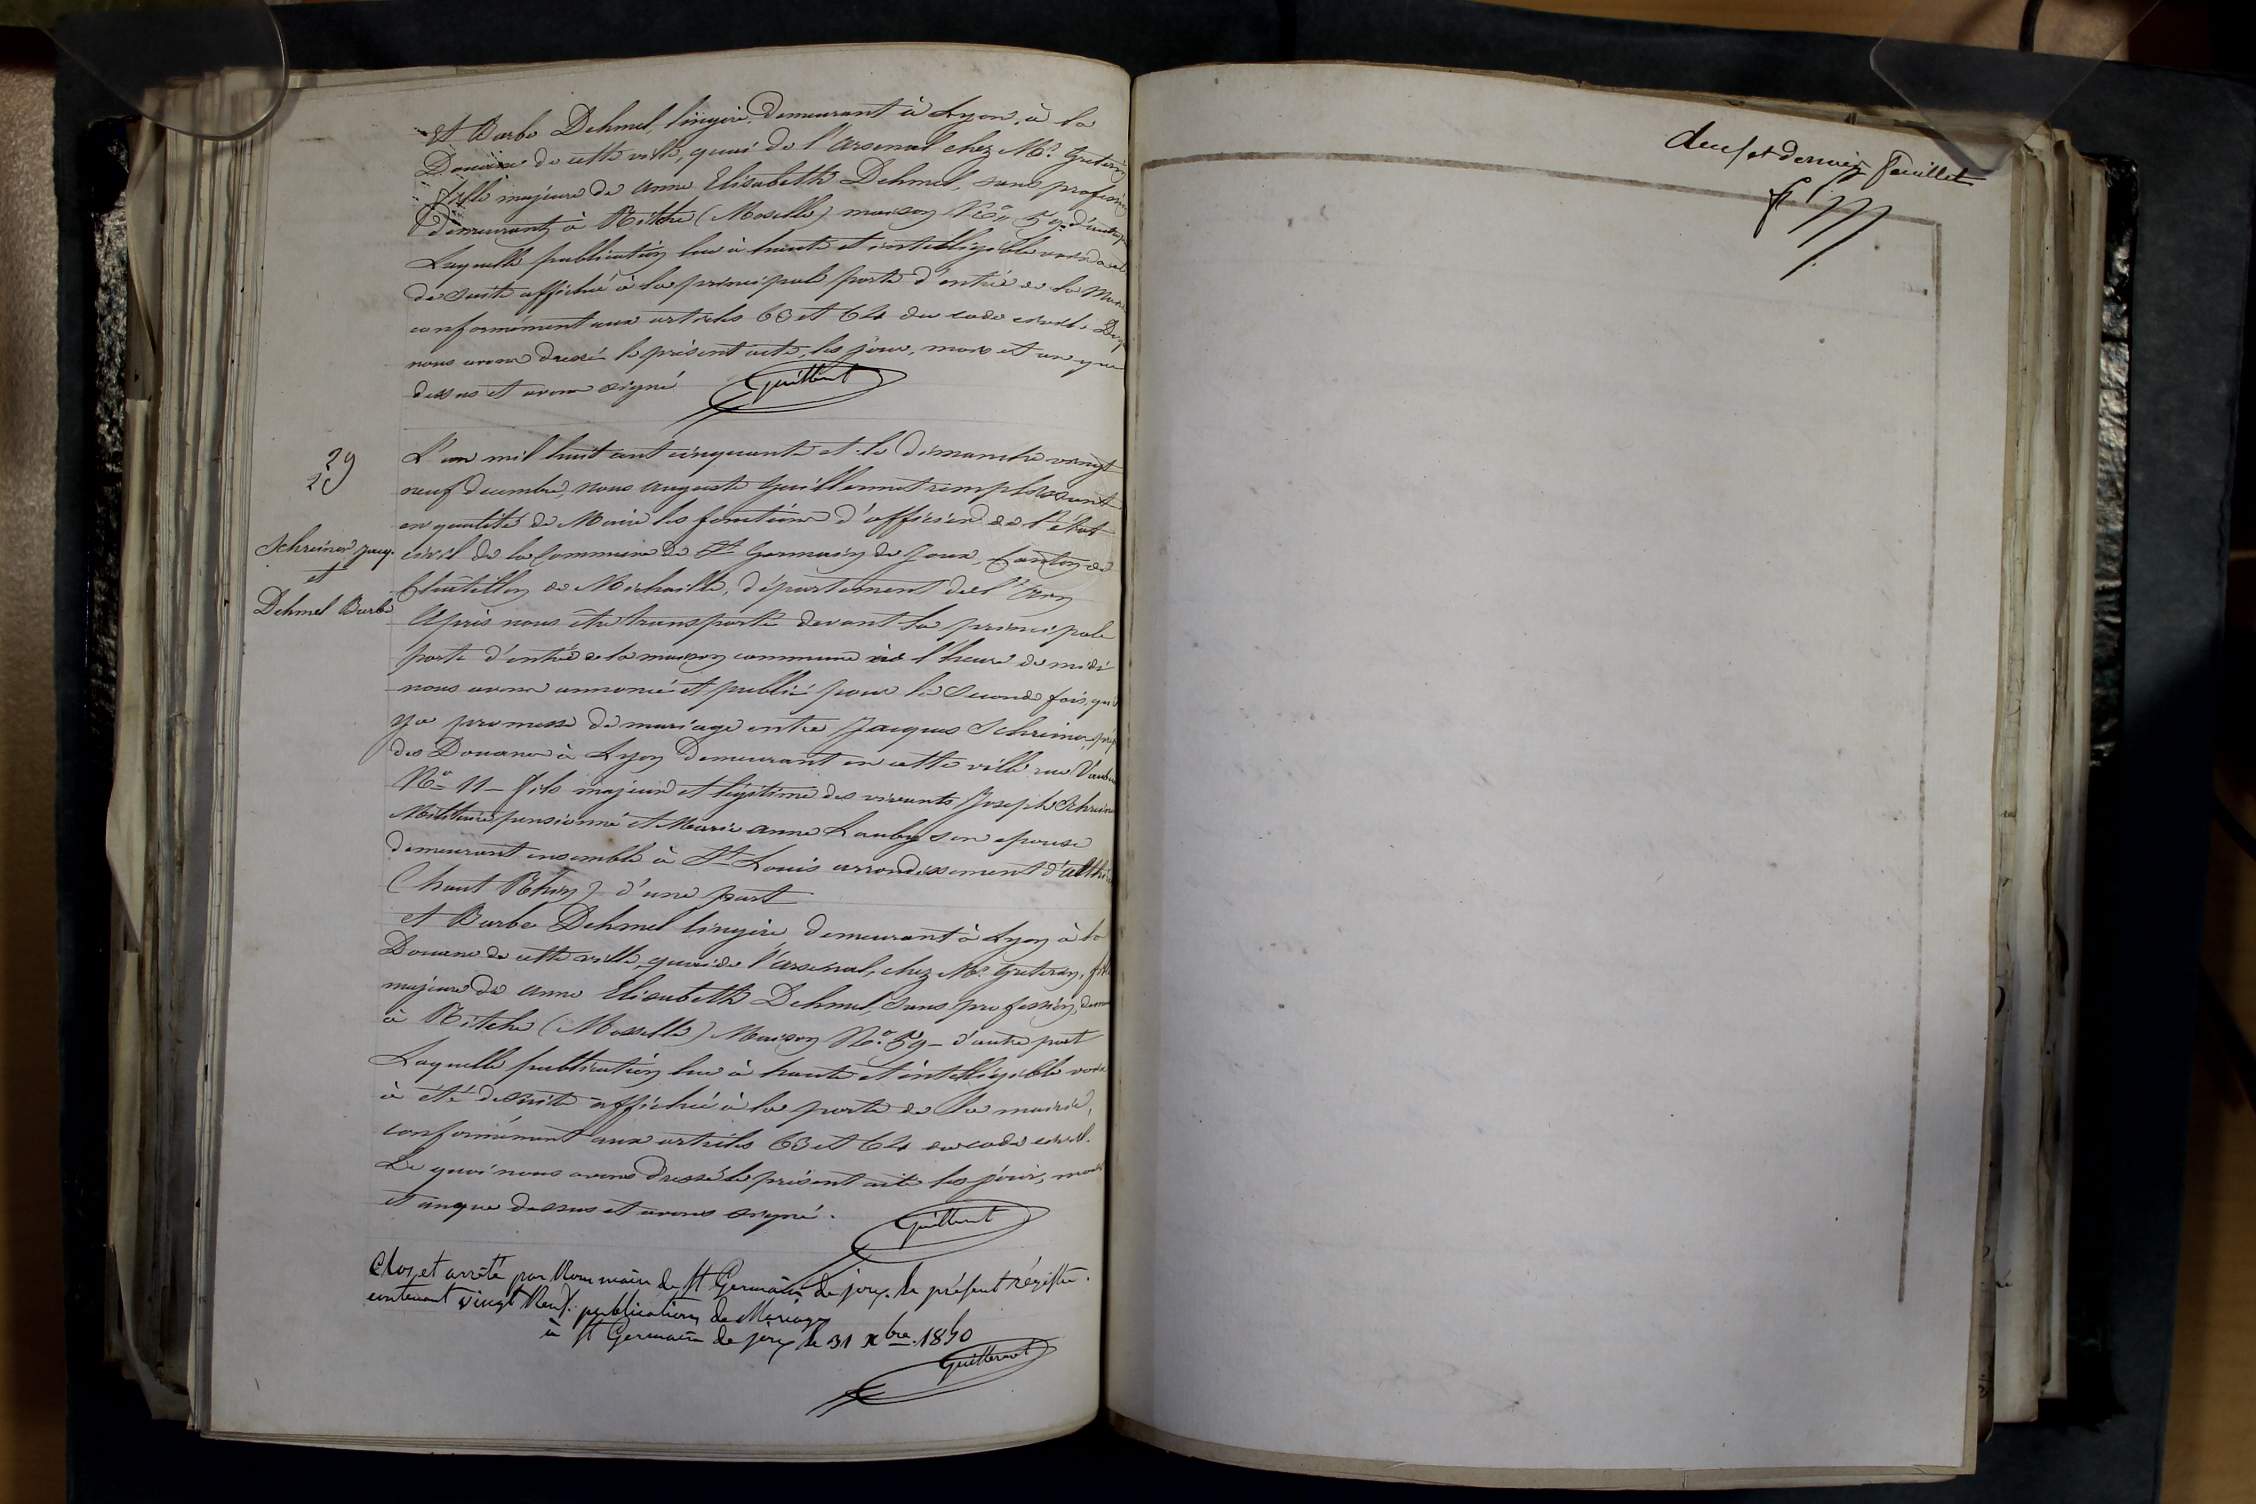 et Barbe Dehmel, lingère, demeurant à Lyon, à la
Douane de cette ville, quai de l'arsenal chez Mr.
fille majeure de anne Elisabeth Dehmel, sans profession
demeurant à Bitche (Moselle) maison No. 59 d'autre
Laquelle publication lue à haute et intelligible voix a été
de suite affichée à la principale porte d'entrée de la
conformément aux articles 63 et 64 du code civil. De
nous avons dressé le présent acte, les jour, mois et an que
dessus et avons signé
Guillermet
29
29
Schreiner Jacq.
et
Dehmel Barbe
L'an mil huit cent cinquante et le dimanche vingt
neuf decembre, nous auguste Guillermet remplissant
en qualité de Maire les fonctions d'officier de l'état
civil de la Commune de St Germain de Joux, Canton de
Châtillon de Michaille, département de l'Ain
Après nous être transporté devant la principale
porte d'entrée de la maison commune à l'heure de midi
nous avons annoncé et publié pour la seconde fois, qu'il
y a promesse de mariage entre Jacques Schreiner, prép
des Douanes à Lyon demeurant en cette ville rue Vauban
No. 11 - fils majeur et légitime des vivants Joseph Schreiner
Militaire pensionné et Marie anne Lauby son epouse
demeurant ensemble à St Louis arrondissement d'
(haut Rhin) d'une part
et Barbe Dehmel lingère demeurant à Lyon à la
Douane de cette ville, quai de l'arsenal, chez Mr. fille
majeure de anne Elisabeth Dehmel, sans profession,
à Bitche (Moselle) Maison No. 59 - d'autre part
Laquelle publication lue à haute et intelligible voix
à été de suite affichée à la porte de la mairie,
conformément aux articles 63 et 64 du code civil.
De quoi nous avons dressé le présent acte les jour, mois
et an que dessus et avons signé.
Guillermet
Clos et arrêté par Nous maire de St Germain de joux le présent régistre.
contenant vingt Neuf publications de Mariage
à St Germain de joux le 31 xbre 1850
Guillermet
et dernier feuillet